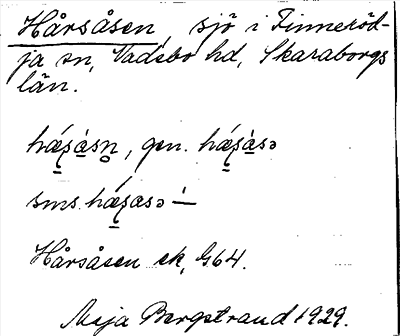 Hårsåsen, sjö i Finneröd-
ja sn, Vadsbo hd, Skaraborgs
län.
hǽʂàsn̥, gen. hǽʂàsə
sms. hǽʂasə -́
Hårsåsen ek, G64.
Maja Bergstrand 1929.